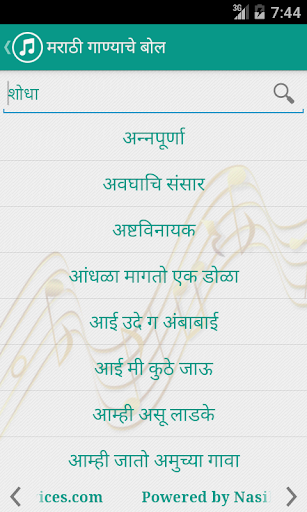 3G 7:44
मराठी गाण्याचे बोल
शोधा
अन्नपूर्णा
अवघाचि संसार
अष्टविनायक
आंधळा मागतो एक डोळा
आई उदे ग अंबाबाई
आई मी कुठे जाऊ
आम्ही असू लाडके
आम्ही जातो अमुच्या गावा
ices.com Powered by Nasi